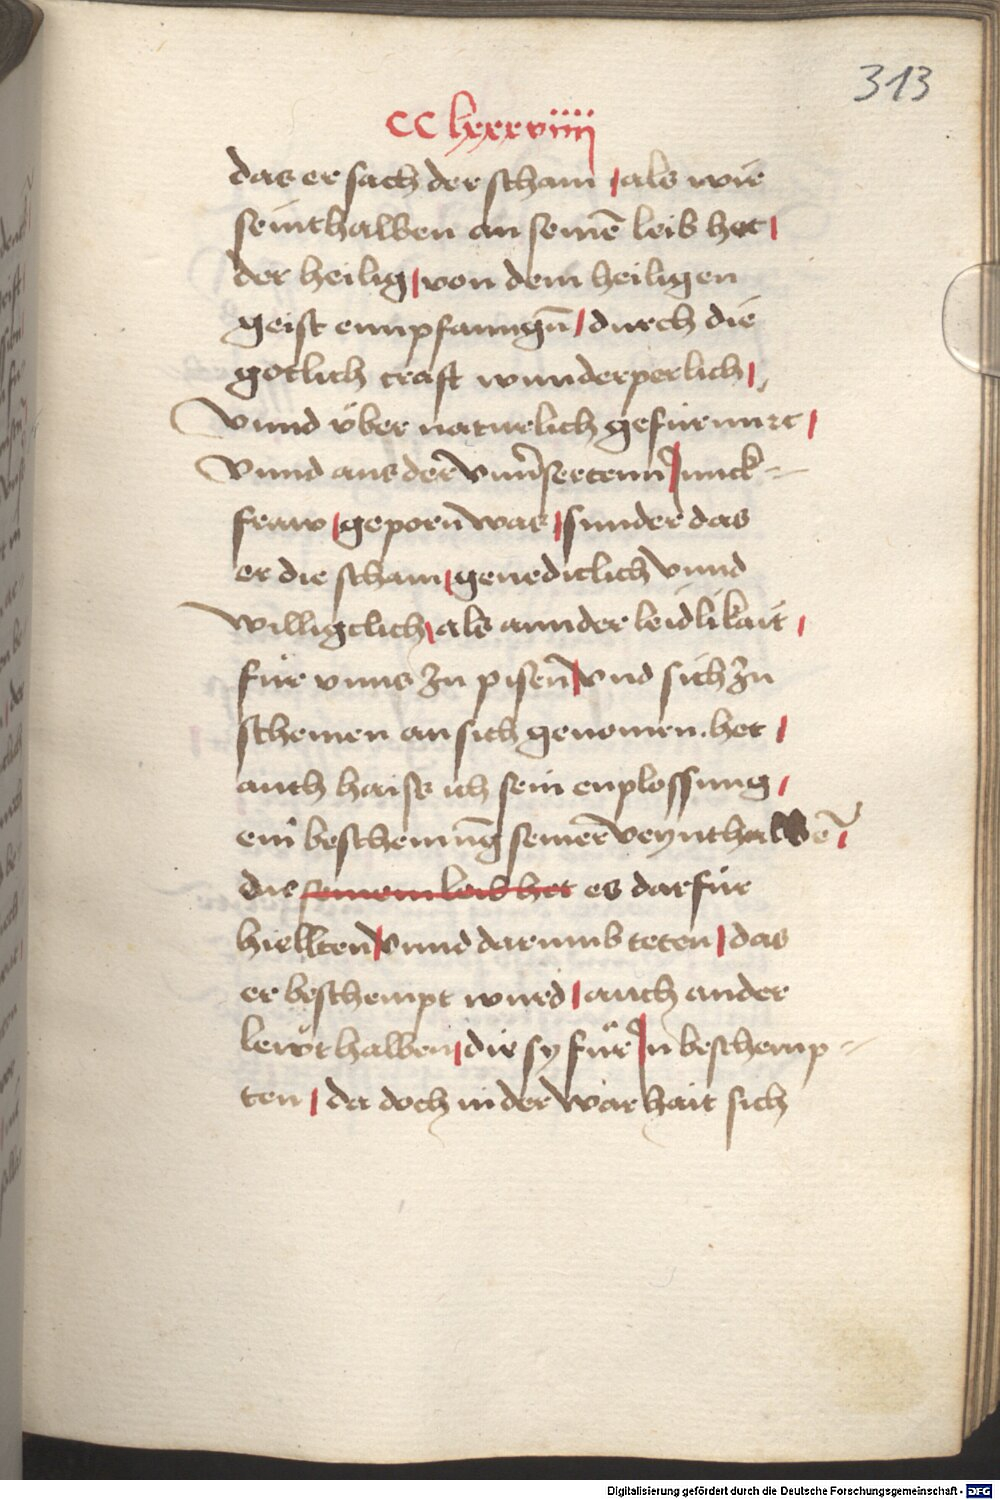 313
CC lxxxviiij
das er sach der scham / als wie
seinthalben an seinē leib het /
der heilig / von dem heiligen
geist ennpfanngn̄ / durch die
gotlich craft wunderperlich /
Vnnd vber naturlich gefurmirt /
Vnnd aus der vnuersertenn / junck=
fraw / geporn̄ was / sunder das
er die scham / genedictlich vnnd
willigclich / als annder leidlikait /
für vnns zu pisen̄ / vnd sich zu
schemen an sich genomen . het /
auch haiss ich sein enplossung /
ein beschemūg seiner veynthalbē /
die seinem leib het es darfür
hiellten / vnnd darumb teten / das
er beschempt wurd / auch ander
lewt halben / die sy für / in beschemp=
ten / da doch in der warhait sich
Digitalisierung gefördert durch die Deutsche Forschungsgemeinschaft - DFG